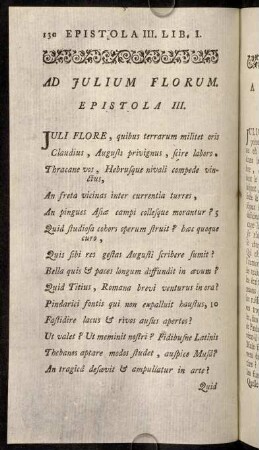 130 EPISTOLA III. LIB. I.
AD JULIUM FLORUM.
EPISTOLA III.
JULI FLORE, quibus terrarum militet oris
Claudius, Augusti privignus, scire laboro.
Thracane vos, Hebrusque nivali compede vin-
ctus,
An freta vicinas inter currentia turres,
An pingues Asiæ campi collesque morantur? 5
Quid studiosa cohors operum struit? hac quoque
curo,
Quis sibi res gestas Augusti scribere sumit?
Bella quis & paces longum diffundit in ævum?
Quid Titius, Romana brevi venturus in ora?
Pindarici fontis qui non expalluit haustus, 10
Fastidire lacus & rivos ausus apertos?
Ut valet? Ut meminit nostri? Fidibusne Latinis
Thebanos aptare modos studet, auspice Musâ?
An tragicâ desævit & ampullatur in arte?
Quid